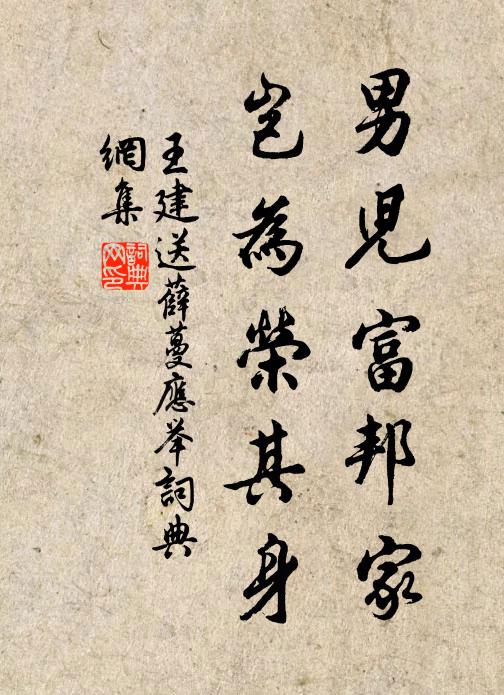 男児富邦家
岂為榮其身
王建送薛蔓應举詞典
網集
詞典
网印